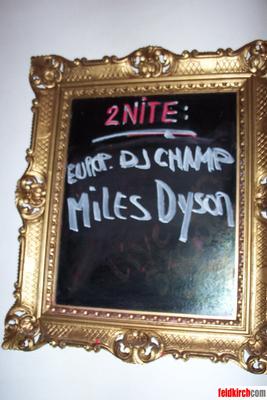 2NITE:
EUROP. DJ CHAMP
MILES Dyson
feldkirch.com